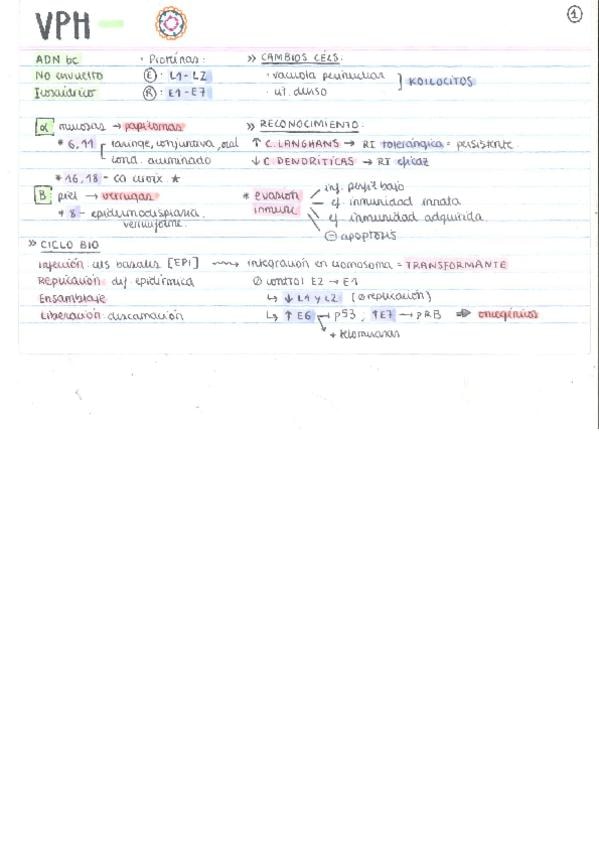 VPH
1
ADN bc
No envuelto
Icosaédrico
· Proteínas:
(E): L1-L2
(R): E1-E7
» CAMBIOS CÉLS:
· vacuola perinuclear
· cit. denso
KOILOCITOS
α mucosas → papilomas
* 6,11 laringe, conjuntiva, oral
cond. acuminado
* 16,18 - ca cérvix ★
B piel → verrugas
* 8 - epidermodisplasia
verruciforme.
» RECONOCIMIENTO:
↑ C. LANGHANS → RI tolerángica = persistente
↓ C. DENDRÍTICAS → RI eficaz
* evasión
inmune
inf. perfil bajo
ef inmunidad innata
ef inmunidad adquirida
⊖ apoptosis
» CICLO BIO
Infección cels basales [EPI] → integración en cromosoma = TRANSFORMANTE
Replicación dif. epidérmica
Ensamblaje
Liberación descamación
∅ control E2 → E1
↳ ↓ L1 y L2 (∅ replicación)
↳ ↑ E6 → p53 ; ↑E7 → pRB ⇒ oncogénicos
+ telomerasas